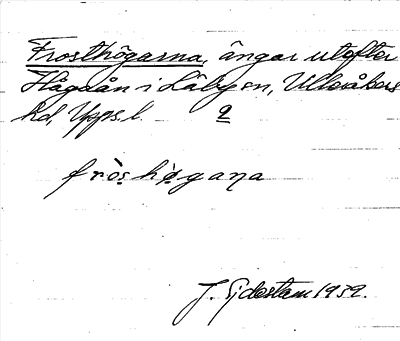 Frosthögarna, ängar utefter
Hågaån i Läby sn, Ulleråkers
hd, Upps. l. 2
fròs hø̀gana
J. Sjdestam 1939.